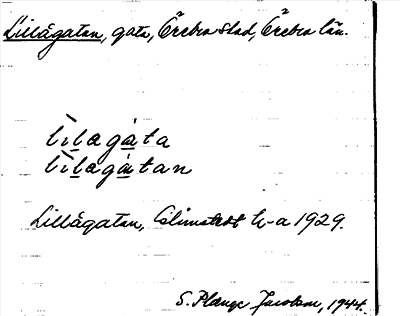 Lillågatan, gata, Örebro stad, Örebro län.
lìlagȧta
lìlagȧtan
Lillågatan, h-a 1929.
S. Plænge Jacobson, 1944.